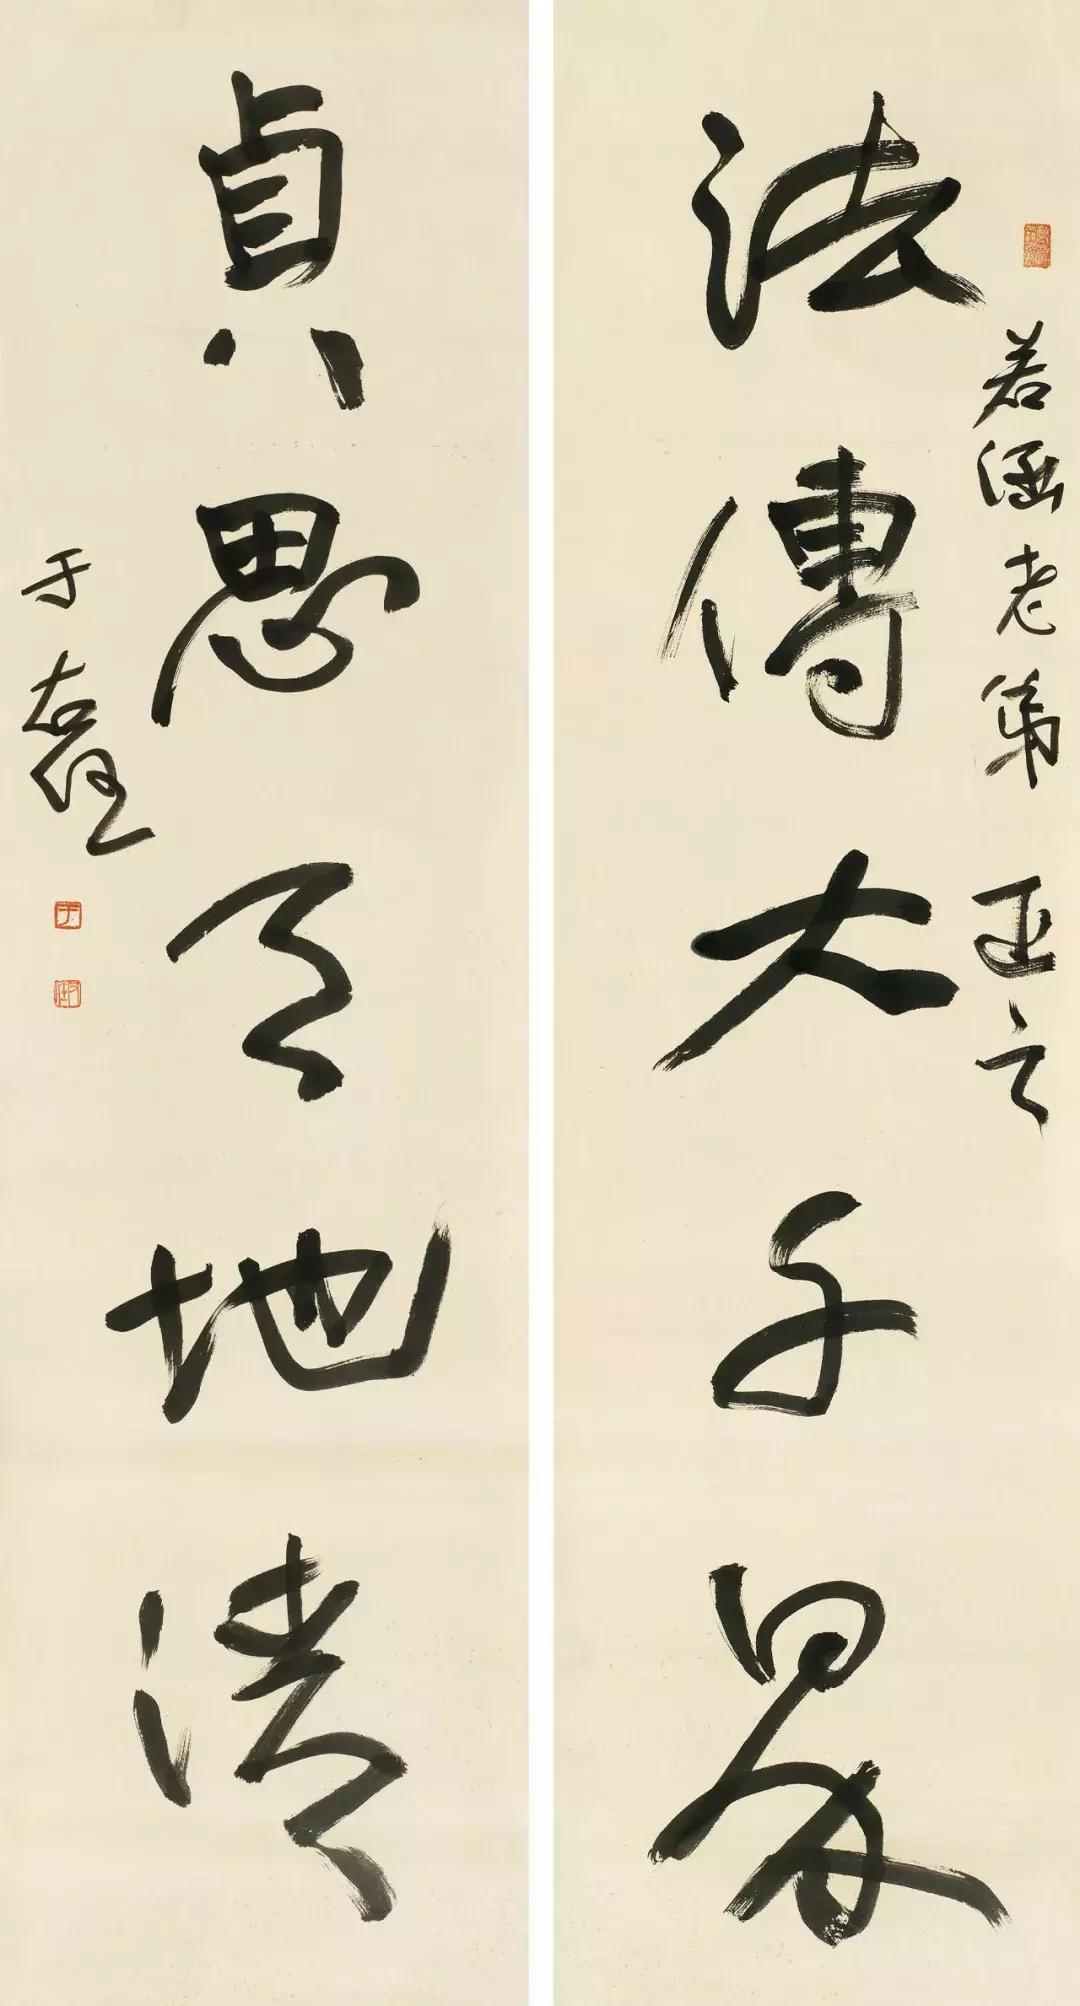 若涵老弟 正之
法傳大千界
貞思天地清
于右任